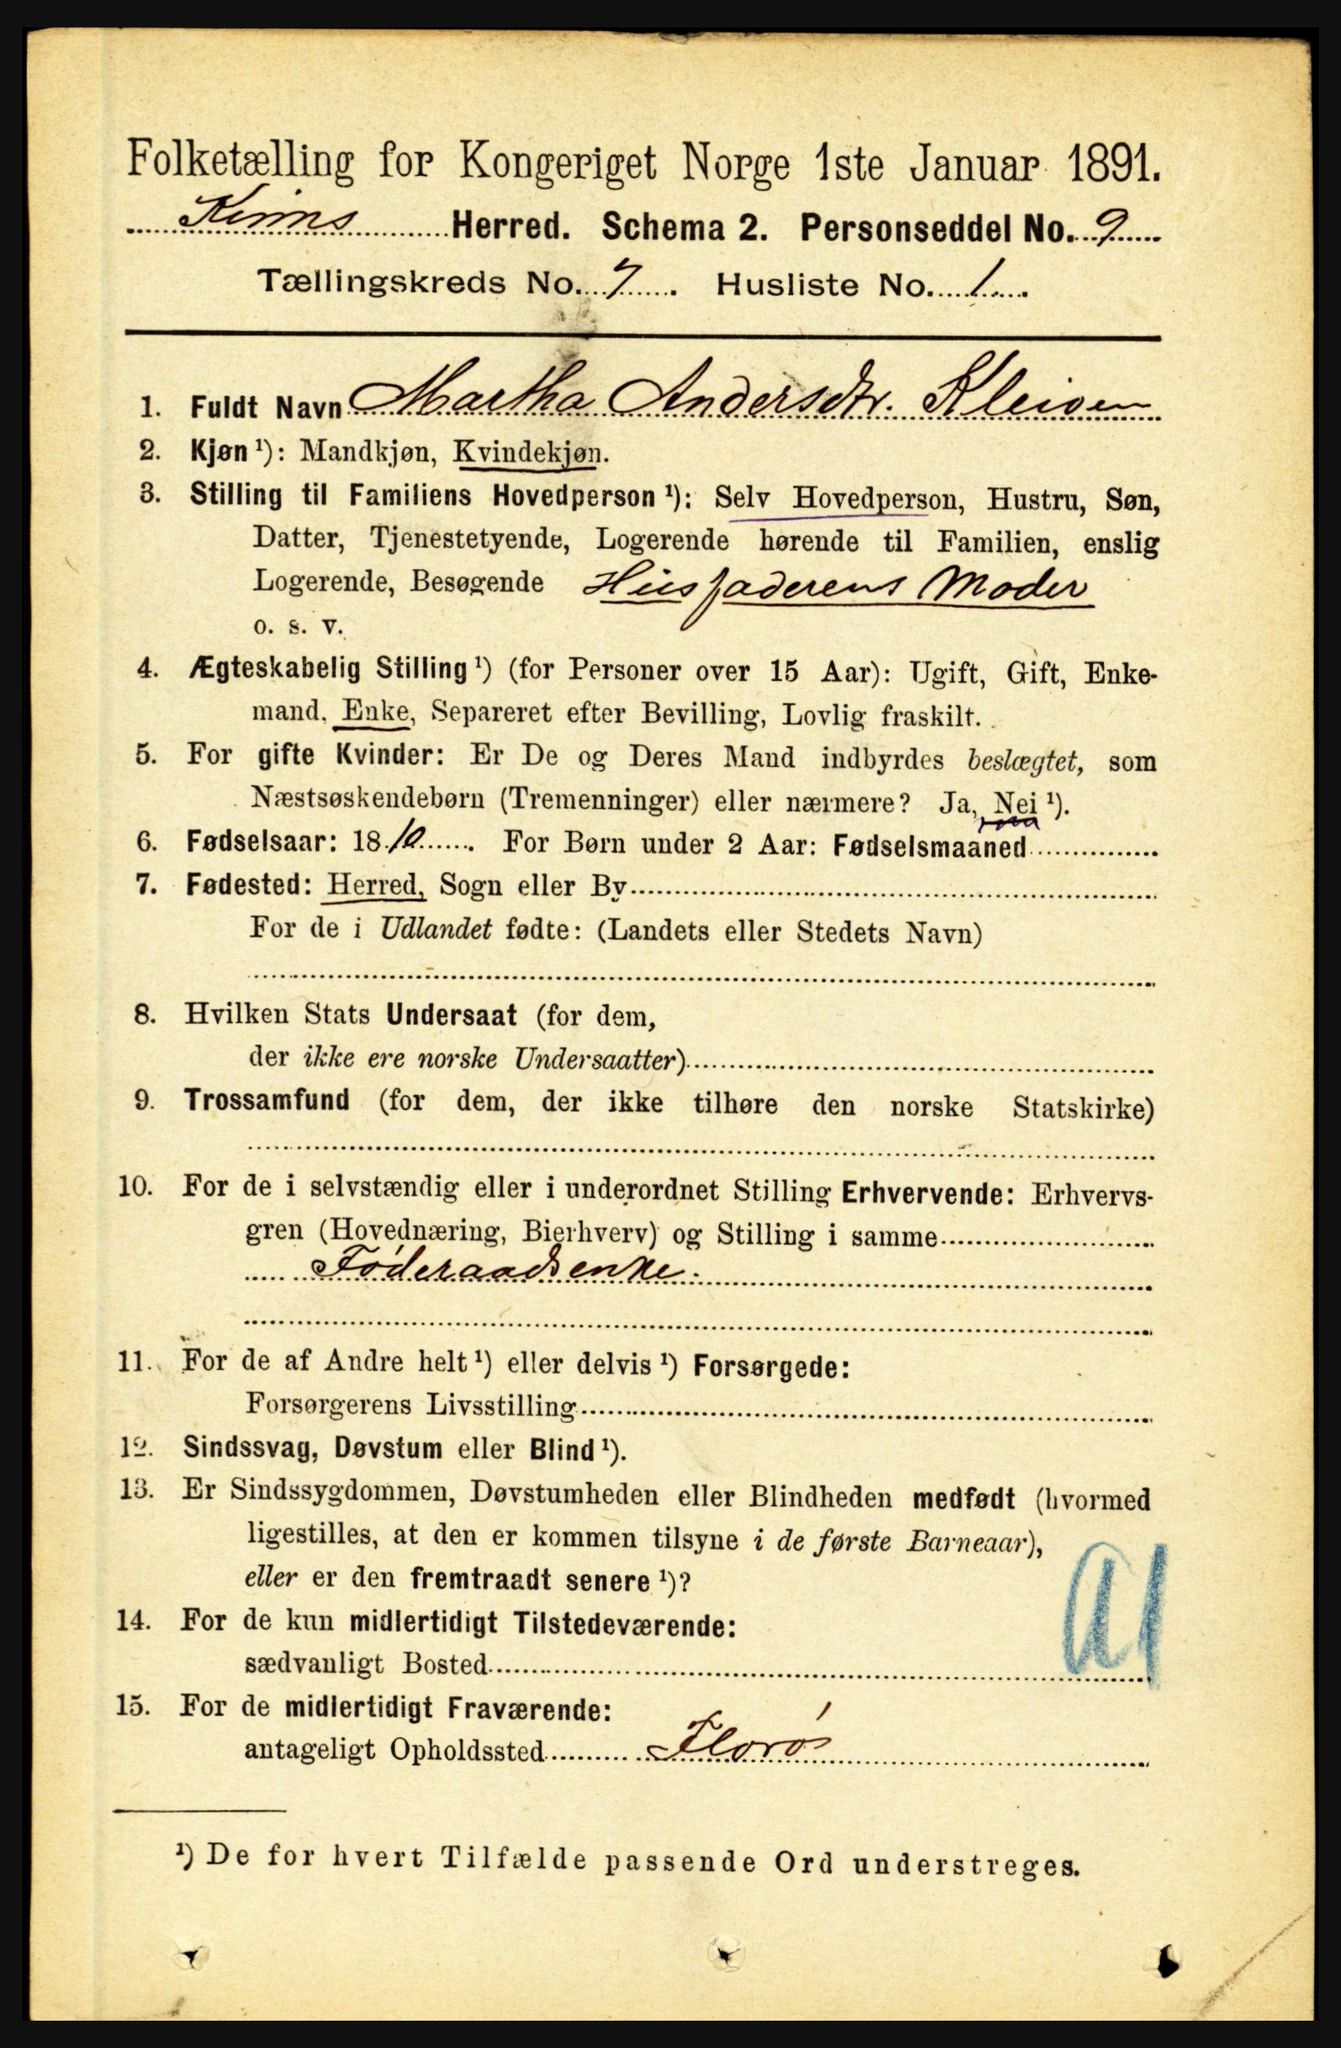 Folketælling for Kongeriget Norge 1ste Januar 1891.
Kinns Herred. Schema 2. Personseddel No. 9
Tællingskreds No. 7. Husliste No. 1.
1. Fuldt Navn Martha Andersdtr. Kleiven
2. Kjøn ¹): Mandkjøn, Kvindekjøn.
3. Stilling til Familiens Hovedperson ¹): Selv Hovedperson, Hustru, Søn,
Datter, Tjenestetyende, Logerende hørende til Familien, enslig
Logerende, Besøgende Husfaderens Moder
o. s. v.
4. Ægteskabelig Stilling ¹) (for Personer over 15 Aar): Ugift, Gift, Enke-
mand, Enke, Separeret efter Bevilling, Lovlig fraskilt.
5. For gifte Kvinder: Er De og Deres Mand indbyrdes beslægtet, som
Næstsøskendebørn (Tremenninger) eller nærmere? Ja, Nei ¹).
6. Fødselsaar: 1810. For Børn under 2 Aar: Fødselsmaaned
7. Fødested: Herred, Sogn eller By
For de i Udlandet fødte: (Landets eller Stedets Navn)
8. Hvilken Stats Undersaat (for dem,
der ikke ere norske Undersaatter)
9. Trossamfund (for dem, der ikke tilhøre den norske Statskirke)
10. For de i selvstændig eller i underordnet Stilling Erhvervende: Erhvervs-
gren (Hovednæring, Bierhverv) og Stilling i samme
Føderaadsenke.
11. For de af Andre helt ¹) eller delvis ¹) Forsørgede:
Forsørgerens Livsstilling
12. Sindssvag, Døvstum eller Blind ¹).
13. Er Sindssygdommen, Døvstumheden eller Blindheden medfødt (hvormed
ligestilles, at den er kommen tilsyne i de første Barneaar),
eller er den fremtraadt senere ¹)?
14. For de kun midlertidigt Tilstedeværende:
sædvanligt Bosted
15. For de midlertidigt Fraværende:
antageligt Opholdssted Florø
¹) De for hvert Tilfælde passende Ord understreges.